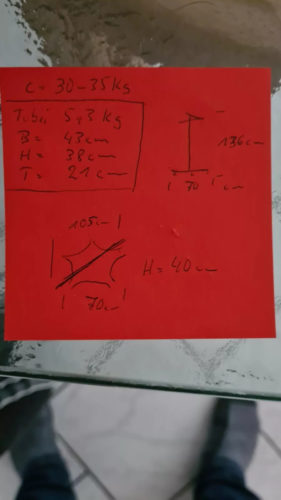 C = 30-35Kg
5,3 Kg
B = 43cm
H = 38cm
T = 21cm
136cm
70 cm
105cm
H = 40cm
70cm